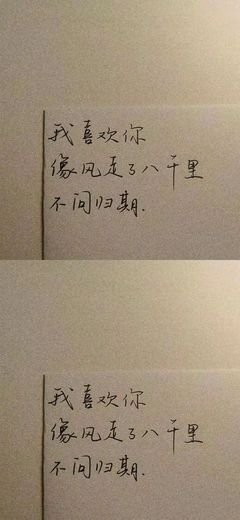 我喜欢你
像风走了八千里
不问归期.
我喜欢你
像风走了八千里
不问归期.